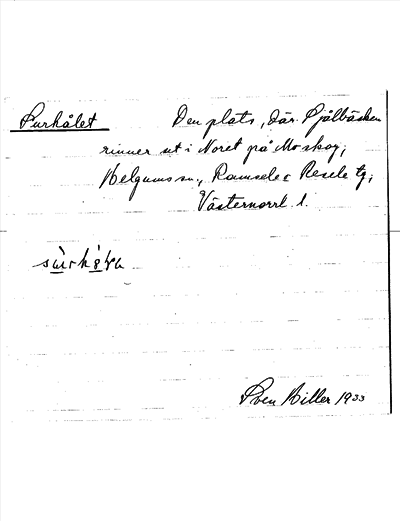 Surhålet Den plats, där Själbäcken
rinner ut i Noret på Moskog,
Helgums sn., Ramsele o Resele tg,
Västernorrl. l.
Sven Hiller 1933